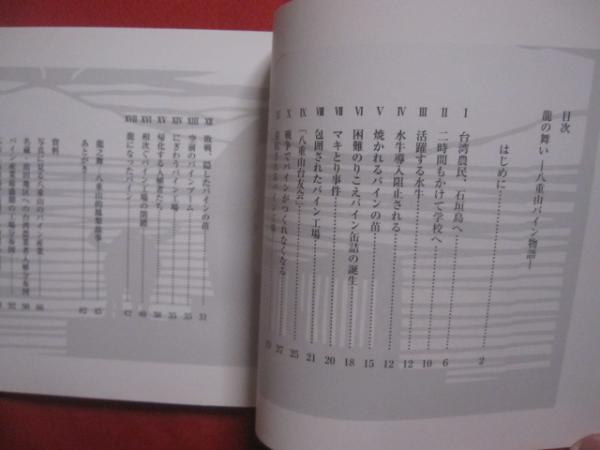 目次
龍の舞い ―八重山パイン物語―
はじめに 2
Ⅰ 台湾農民、石垣島へ 6
Ⅱ 二時間もかけて学校へ 10
Ⅲ 活躍する水牛 12
Ⅳ 水牛導入阻止される 12
Ⅴ 焼かれるパインの苗 15
Ⅵ 困難のりこえパイン缶詰の誕生 18
Ⅶ マキとり事件 20
Ⅷ 包囲されたパイン工場 21
Ⅸ 「八重山台友会」 25
Ⅹ 戦争でパインがつくれなくなる 27
Ⅻ 敗戦、隠したパインの苗 31
XIII 空前のパインブーム 35
XIV にぎわうパイン工場 35
XV 帰化する入植者たち 38
XVI 相次ぐパイン工場の閉鎖 40
XVII 龍になったパイン 42
あとがき 82
資料